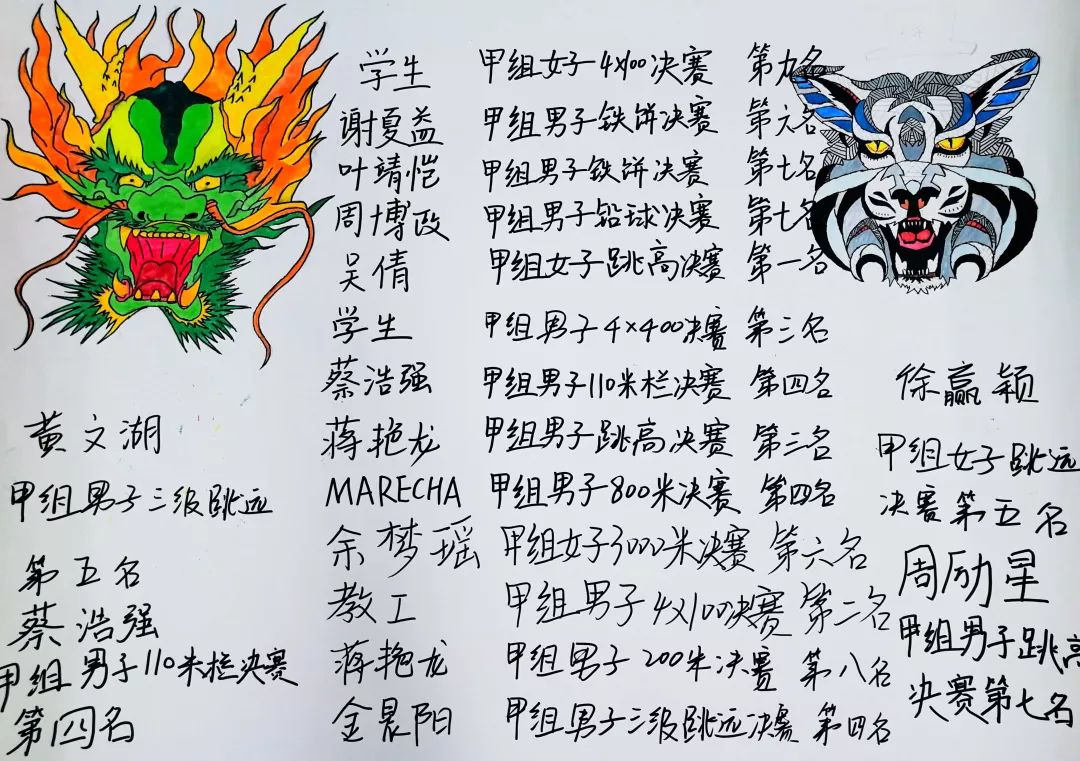 学生 甲组女子4×100决赛 第九名
谢夏益 甲组男子铁饼决赛 第六名
叶靖恺 甲组男子铁饼决赛 第七名
周博政 甲组男子铅球决赛 第七名
吴倩 甲组女子跳高决赛 第一名
学生 甲组男子4×400决赛 第三名
蔡浩强 甲组男子110米栏决赛 第四名
蒋艳龙 甲组男子跳高决赛 第三名
MARECHA 甲组男子800米决赛 第四名
余梦瑶 甲组女子3000米决赛 第六名
教工 甲组男子4×100决赛 第二名
蒋艳龙 甲组男子200米决赛 第八名
金晨阳 甲组男子三级跳远决赛 第四名
黄文湖
甲组男子三级跳远
第五名
蔡浩强
甲组男子110米栏决赛
第四名
徐赢颖
甲组女子跳远
决赛第五名
周励星
甲组男子跳高
决赛第七名